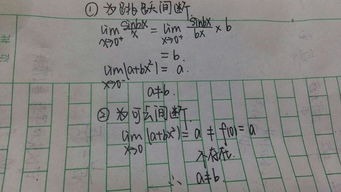 ① 为跳跃间断
lim x→0⁺ sinbx/x = lim x→0⁺ sinbx/bx × b
= b.
lim x→0⁻ (a+bx²) = a.
a≠b.
② 为可去间断.
lim x→0 (a+bx²) = a ≠ f(0) = a
不存在.
∴ a≠b